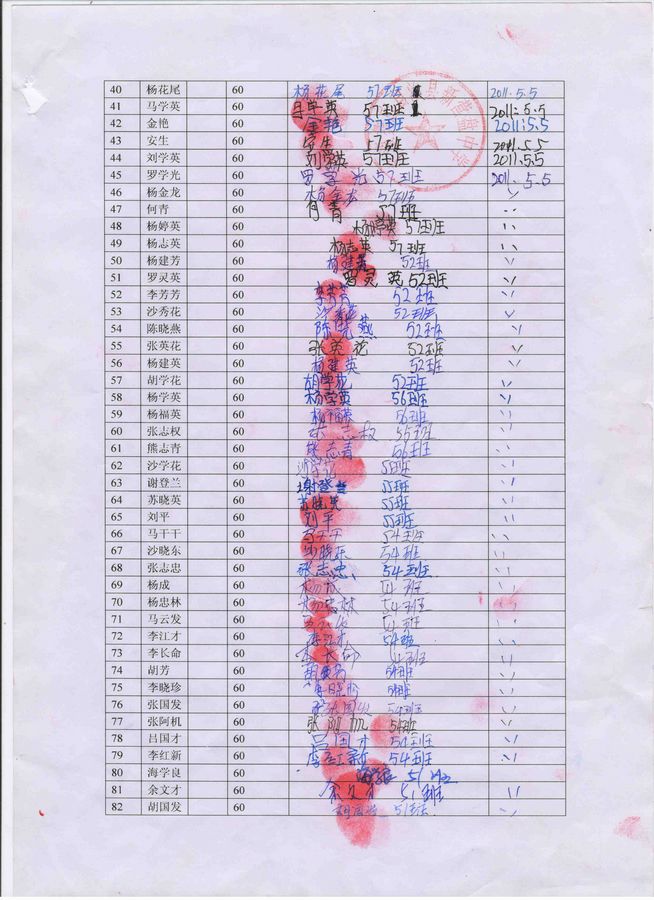 40 杨花尾 60 杨花尾 57班 2011.5.5
41 马学英 60 马学英 57班 2011.5.5
42 金艳 60 金艳 57班 2011.5.5
43 安生 60 安生 57班 2011.5.5
44 刘学英 60 刘学英 57班 2011.5.5
45 罗学光 60 罗学光 57班 2011.5.5
46 杨金龙 60 杨金龙 57班
47 何青 60 何青 57班
48 杨婷英 60 杨婷英 57班
49 杨志英 60 杨志英 57班
50 杨建芳 60 杨建芳 52班
51 罗灵英 60 罗灵英 52班
52 李芳芳 60 李芳芳 52班
53 沙秀花 60 沙秀花 52班
54 陈晓燕 60 陈晓燕 52班
55 张英花 60 张英花 52班
56 杨建英 60 杨建英 52班
57 胡学花 60 胡学花 52班
58 杨学英 60 杨学英 56班
59 杨福英 60 杨福英 56班
60 张志权 60 张志权 55班
61 熊志青 60 熊志青 56班
62 沙学花 60 沙学花 55班
63 谢登兰 60 谢登兰 55班
64 苏晓英 60 苏晓英 55班
65 刘平 60 刘平 55班
66 马干干 60 马干干 54班
67 沙晓东 60 沙晓东 54班
68 张志忠 60 张志忠 54班
69 杨成 60 杨成 54班
70 杨忠林 60 杨忠林 54班
71 马云发 60 马云发 54班
72 李江才 60 李江才 54班
73 李长命 60 李长命 54班
74 胡芳 60 胡芳 54班
75 李晓珍 60 李晓珍 54班
76 张国发 60 张国发 54班
77 张阿机 60 张阿机 54班
78 吕国才 60 吕国才 54班
79 李红新 60 李红新 54班
80 海学良 60 海学良 51班
81 余文才 60 余文才 51班
82 胡国发 60 胡国发 51班